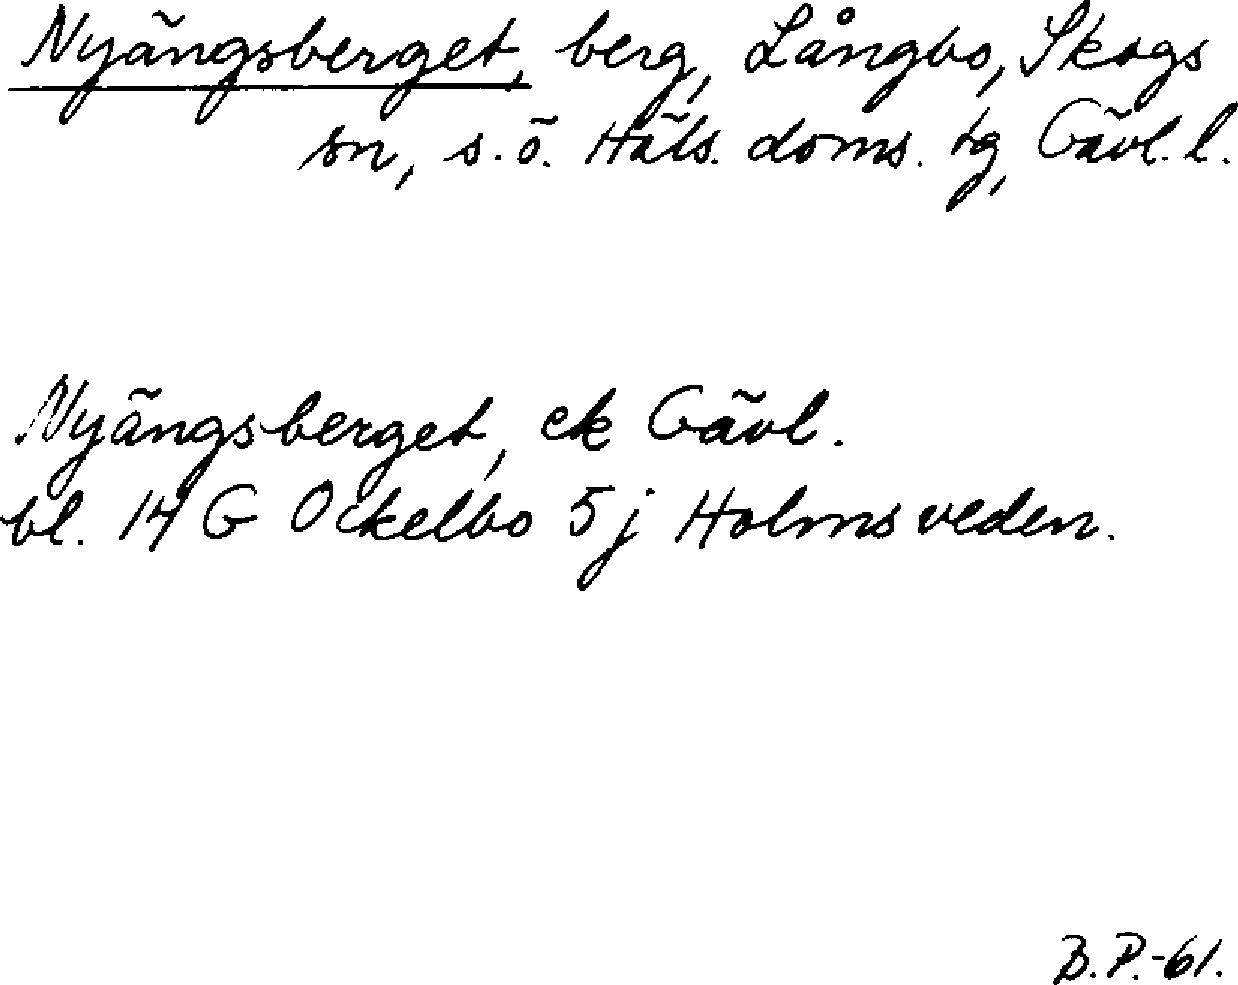 Nyängsberget, berg, Långbo, Skogs
sn, s.ö. Häls. doms. tg, Gävl. l.
Nyängsberget, ek Gävl.
bl. 14 G Ockelbo 5j Holmsveden.
B.P.-61.